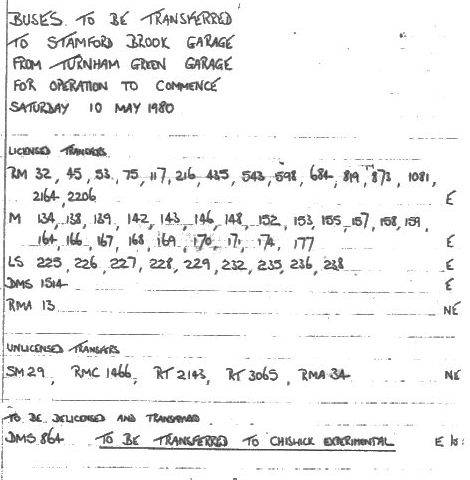 BUSES TO BE TRANSFERRED
TO STAMFORD BROOK GARAGE
FROM TURNHAM GREEN GARAGE
FOR OPERATION TO COMMENCE
SATURDAY 10 MAY 1980
LICENSED TRANSFERS
RM 32, 45, 53, 75, 117, 216, 435, 543, 598, 684, 819, 873, 1081,
2164, 2206 E
M 134, 138, 139, 142, 143, 146, 148, 152, 153, 155, 157, 158, 159,
164, 166, 167, 168, 169, 170, 171, 174, 177 E
LS 225, 226, 227, 228, 229, 232, 235, 236, 238 E
DMS 1514 E
RMA 13 NE
UNLICENSED TRANSFERS
SM 29, RMC 1466, RT 2143, RT 3065, RMA 34 NE
TO BE DELICENSED AND TRANSFERRED
DMS 864 TO BE TRANSFERRED TO CHISWICK EXPERIMENTAL E